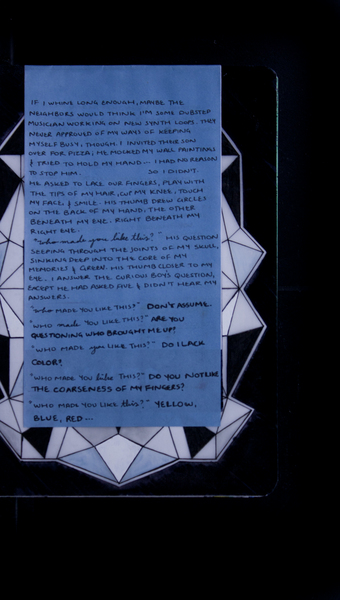 IF I WHINE LONG ENOUGH, MAYBE THE
NEIGHBORS WOULD THINK I'M SOME DUBSTEP
MUSICIAN WORKING ON NEW SYNTH LOOPS. THEY
NEVER APPROVED OF MY WAYS OF KEEPING
MYSELF BUSY, THOUGH. I INVITED THEIR SON
OVER FOR PIZZA; HE MOCKED MY WALL PAINTINGS
& TRIED TO HOLD MY HAND — I HAD NO REASON
TO STOP HIM. SO I DIDN'T.
HE ASKED TO LACE OUR FINGERS, PLAY WITH
THE TIPS OF MY HAIR, CUP MY KNEE, TOUCH
MY FACE. I SMILE. HIS THUMB DREW CIRCLES
ON THE BACK OF MY HAND. THE OTHER
BENEATH MY EYE. RIGHT BENEATH MY
RIGHT EYE.
"who made you like this?" HIS QUESTION
SEEPING THROUGH THE JOINTS OF MY SKULL,
SINKING DEEP INTO THE CORE OF MY
MEMORIES & HIS THUMB CLOSER TO MY
EYE. I ANSWER THE CURIOUS BOY'S QUESTION,
EXCEPT HE HAD ASKED FIVE & DIDN'T HEAR MY
ANSWERS.
"who MADE YOU LIKE THIS?" DON'T ASSUME.
"WHO made YOU LIKE THIS?" ARE YOU
QUESTIONING WHO BROUGHT ME UP?
"WHO MADE you LIKE THIS?" DO I LACK
COLOR?
"WHO MADE YOU like THIS?" DO YOU NOT LIKE
THE COARSENESS OF MY FINGERS?
"WHO MADE YOU LIKE this?" YELLOW,
BLUE, RED —